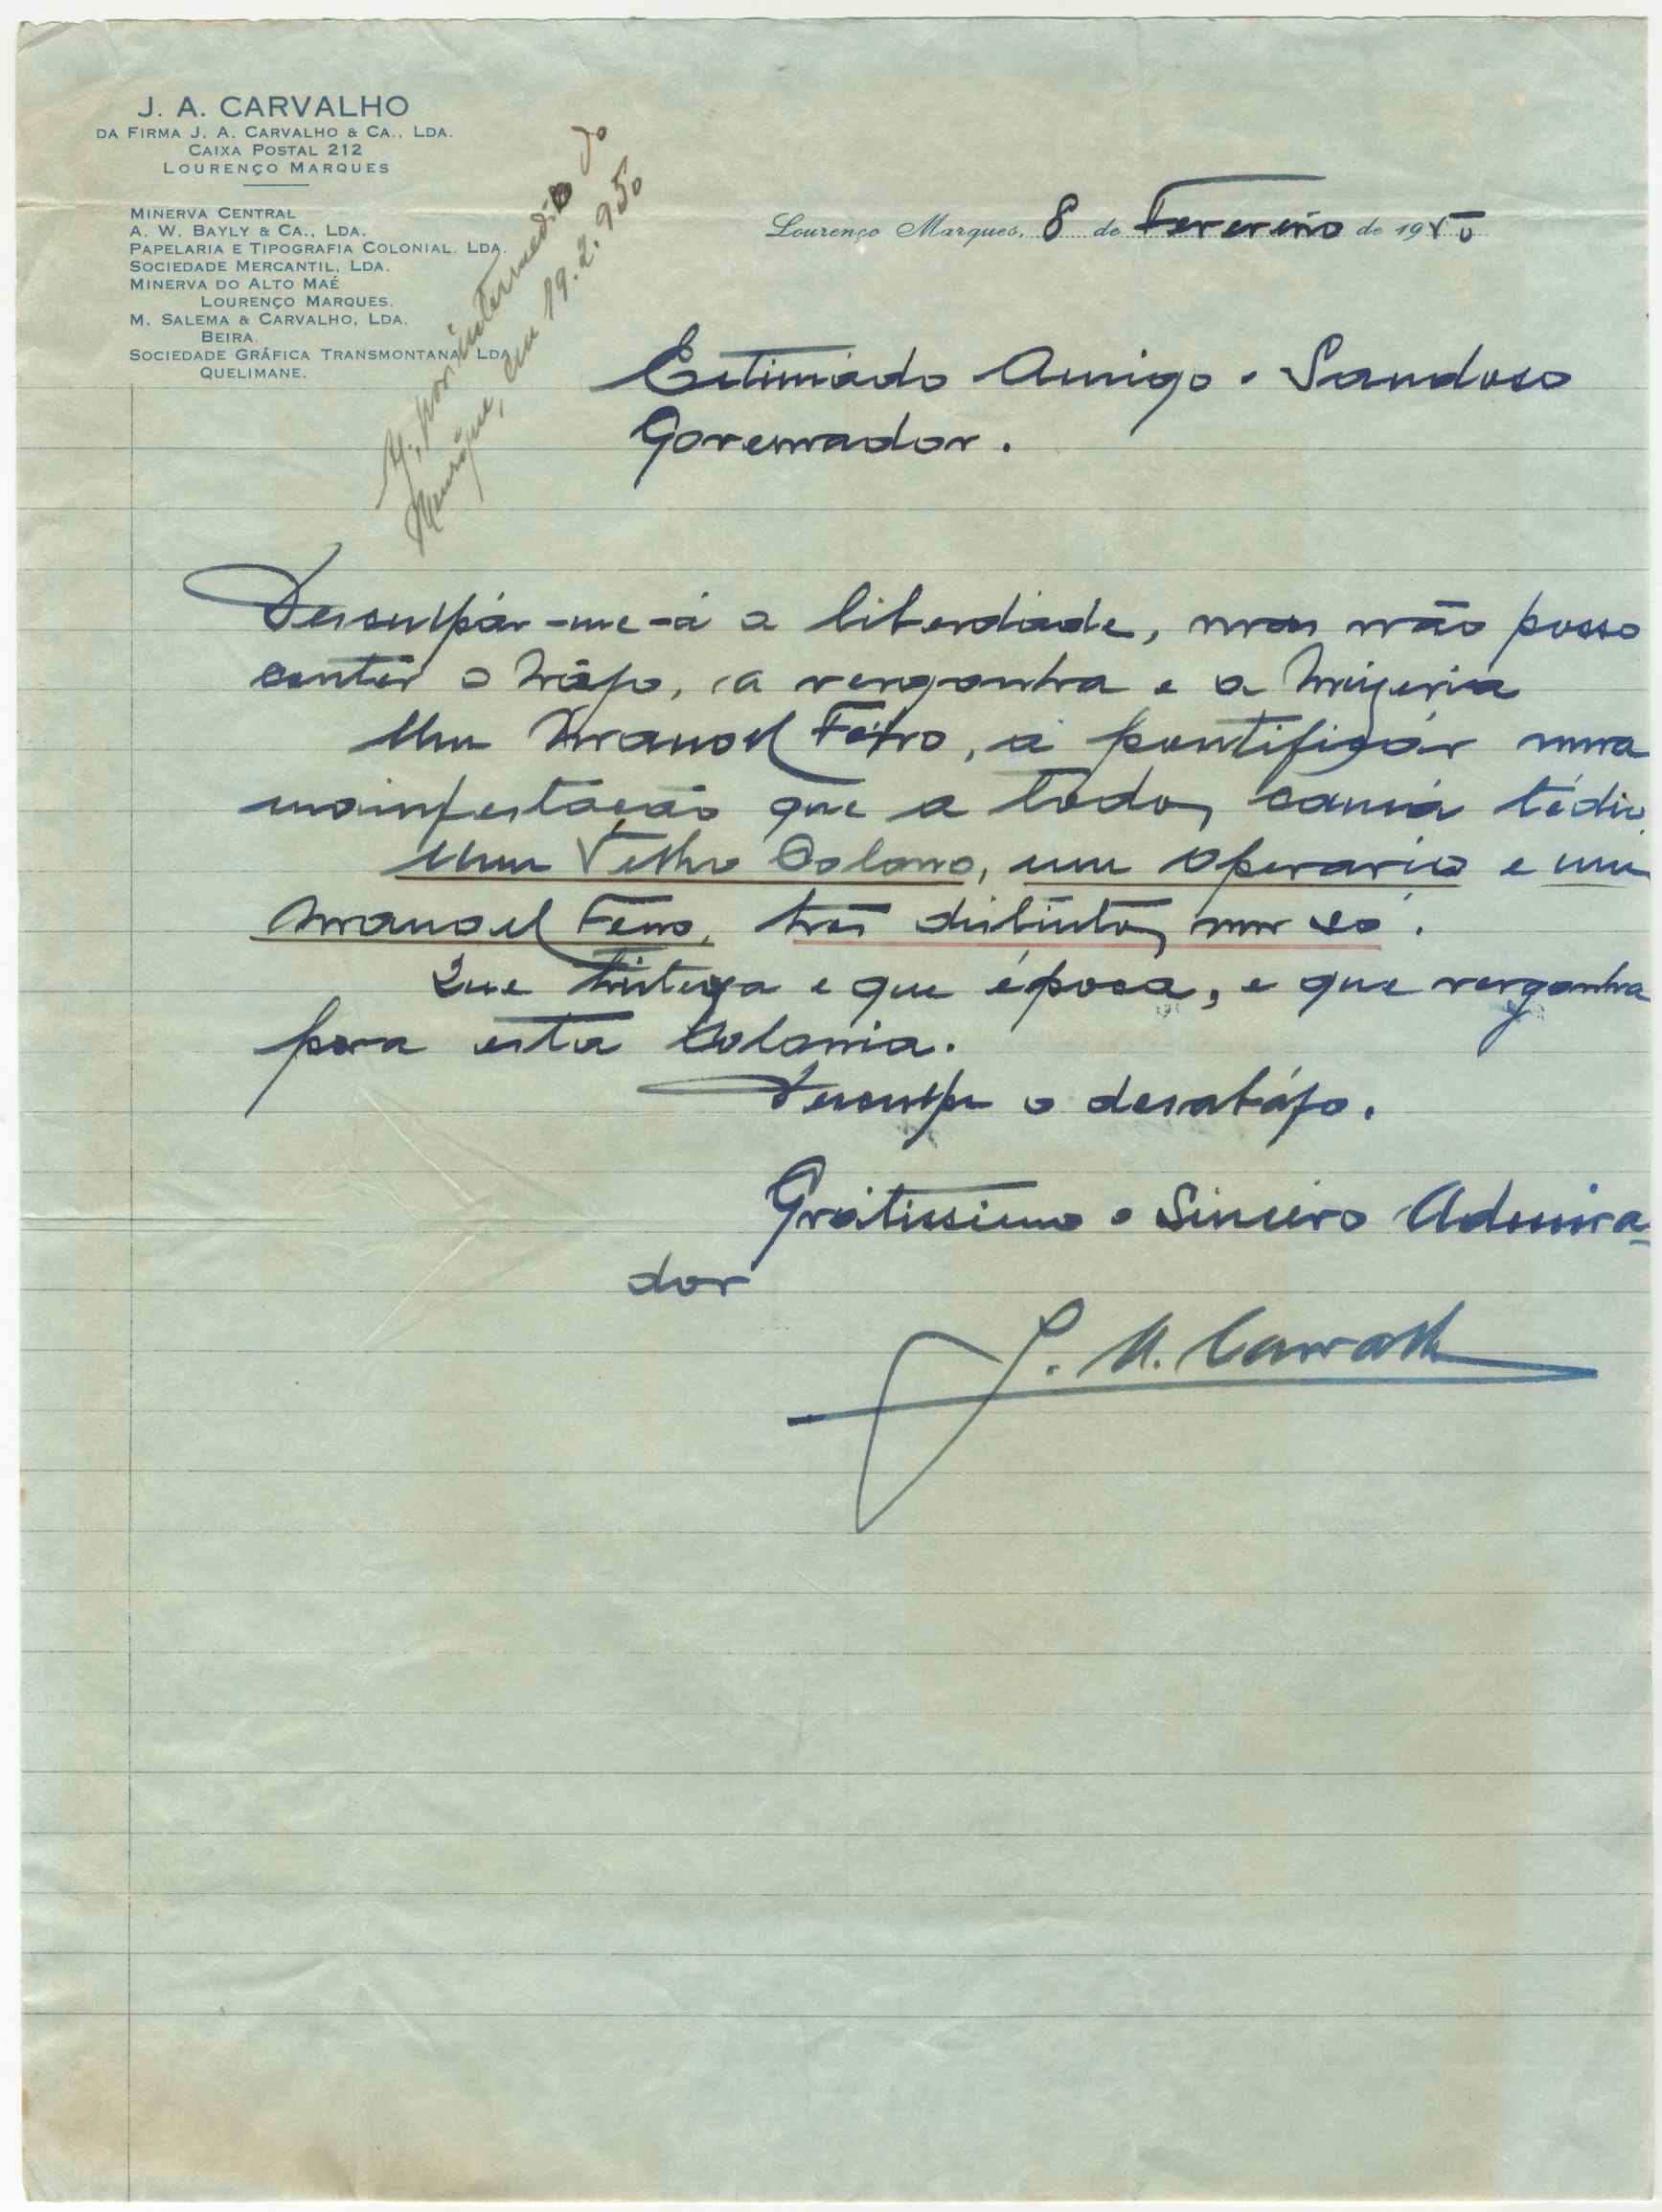 J. A. CARVALHO
DA FIRMA J. A. CARVALHO & CA., LDA.
CAIXA POSTAL 212
LOURENÇO MARQUES
MINERVA CENTRAL
A. W. BAYLY & CA., LDA.
PAPELARIA E TIPOGRAFIA COLONIAL. LDA.
SOCIEDADE MERCANTIL, LDA.
MINERVA DO ALTO MAÉ
LOURENÇO MARQUES.
M. SALEMA & CARVALHO, LDA.
BEIRA.
SOCIEDADE GRÁFICA TRANSMONTANA, LDA
QUELIMANE.
por intermedio do
em 19.2.950
Lourenço Marques, 8 de Fevereiro de 1950
Estimádo Amigo e Saudoso
Governador.
Desculpár-me-á a liberdáde, mas não posso
contêr o, a vergonha e a mizeria
Um Manoel, a pontificár numa
mainfestacão que a todos causá tédio.
Um Velho Colono, um operario e um
Manoel, tres distintos, num só.
Que tristeza e que época, e que vergonha
para esta Colonia.
Desculpe o desabáfo.
Grátissimo e Sincero Admira-
dor
J. A. Carvalho